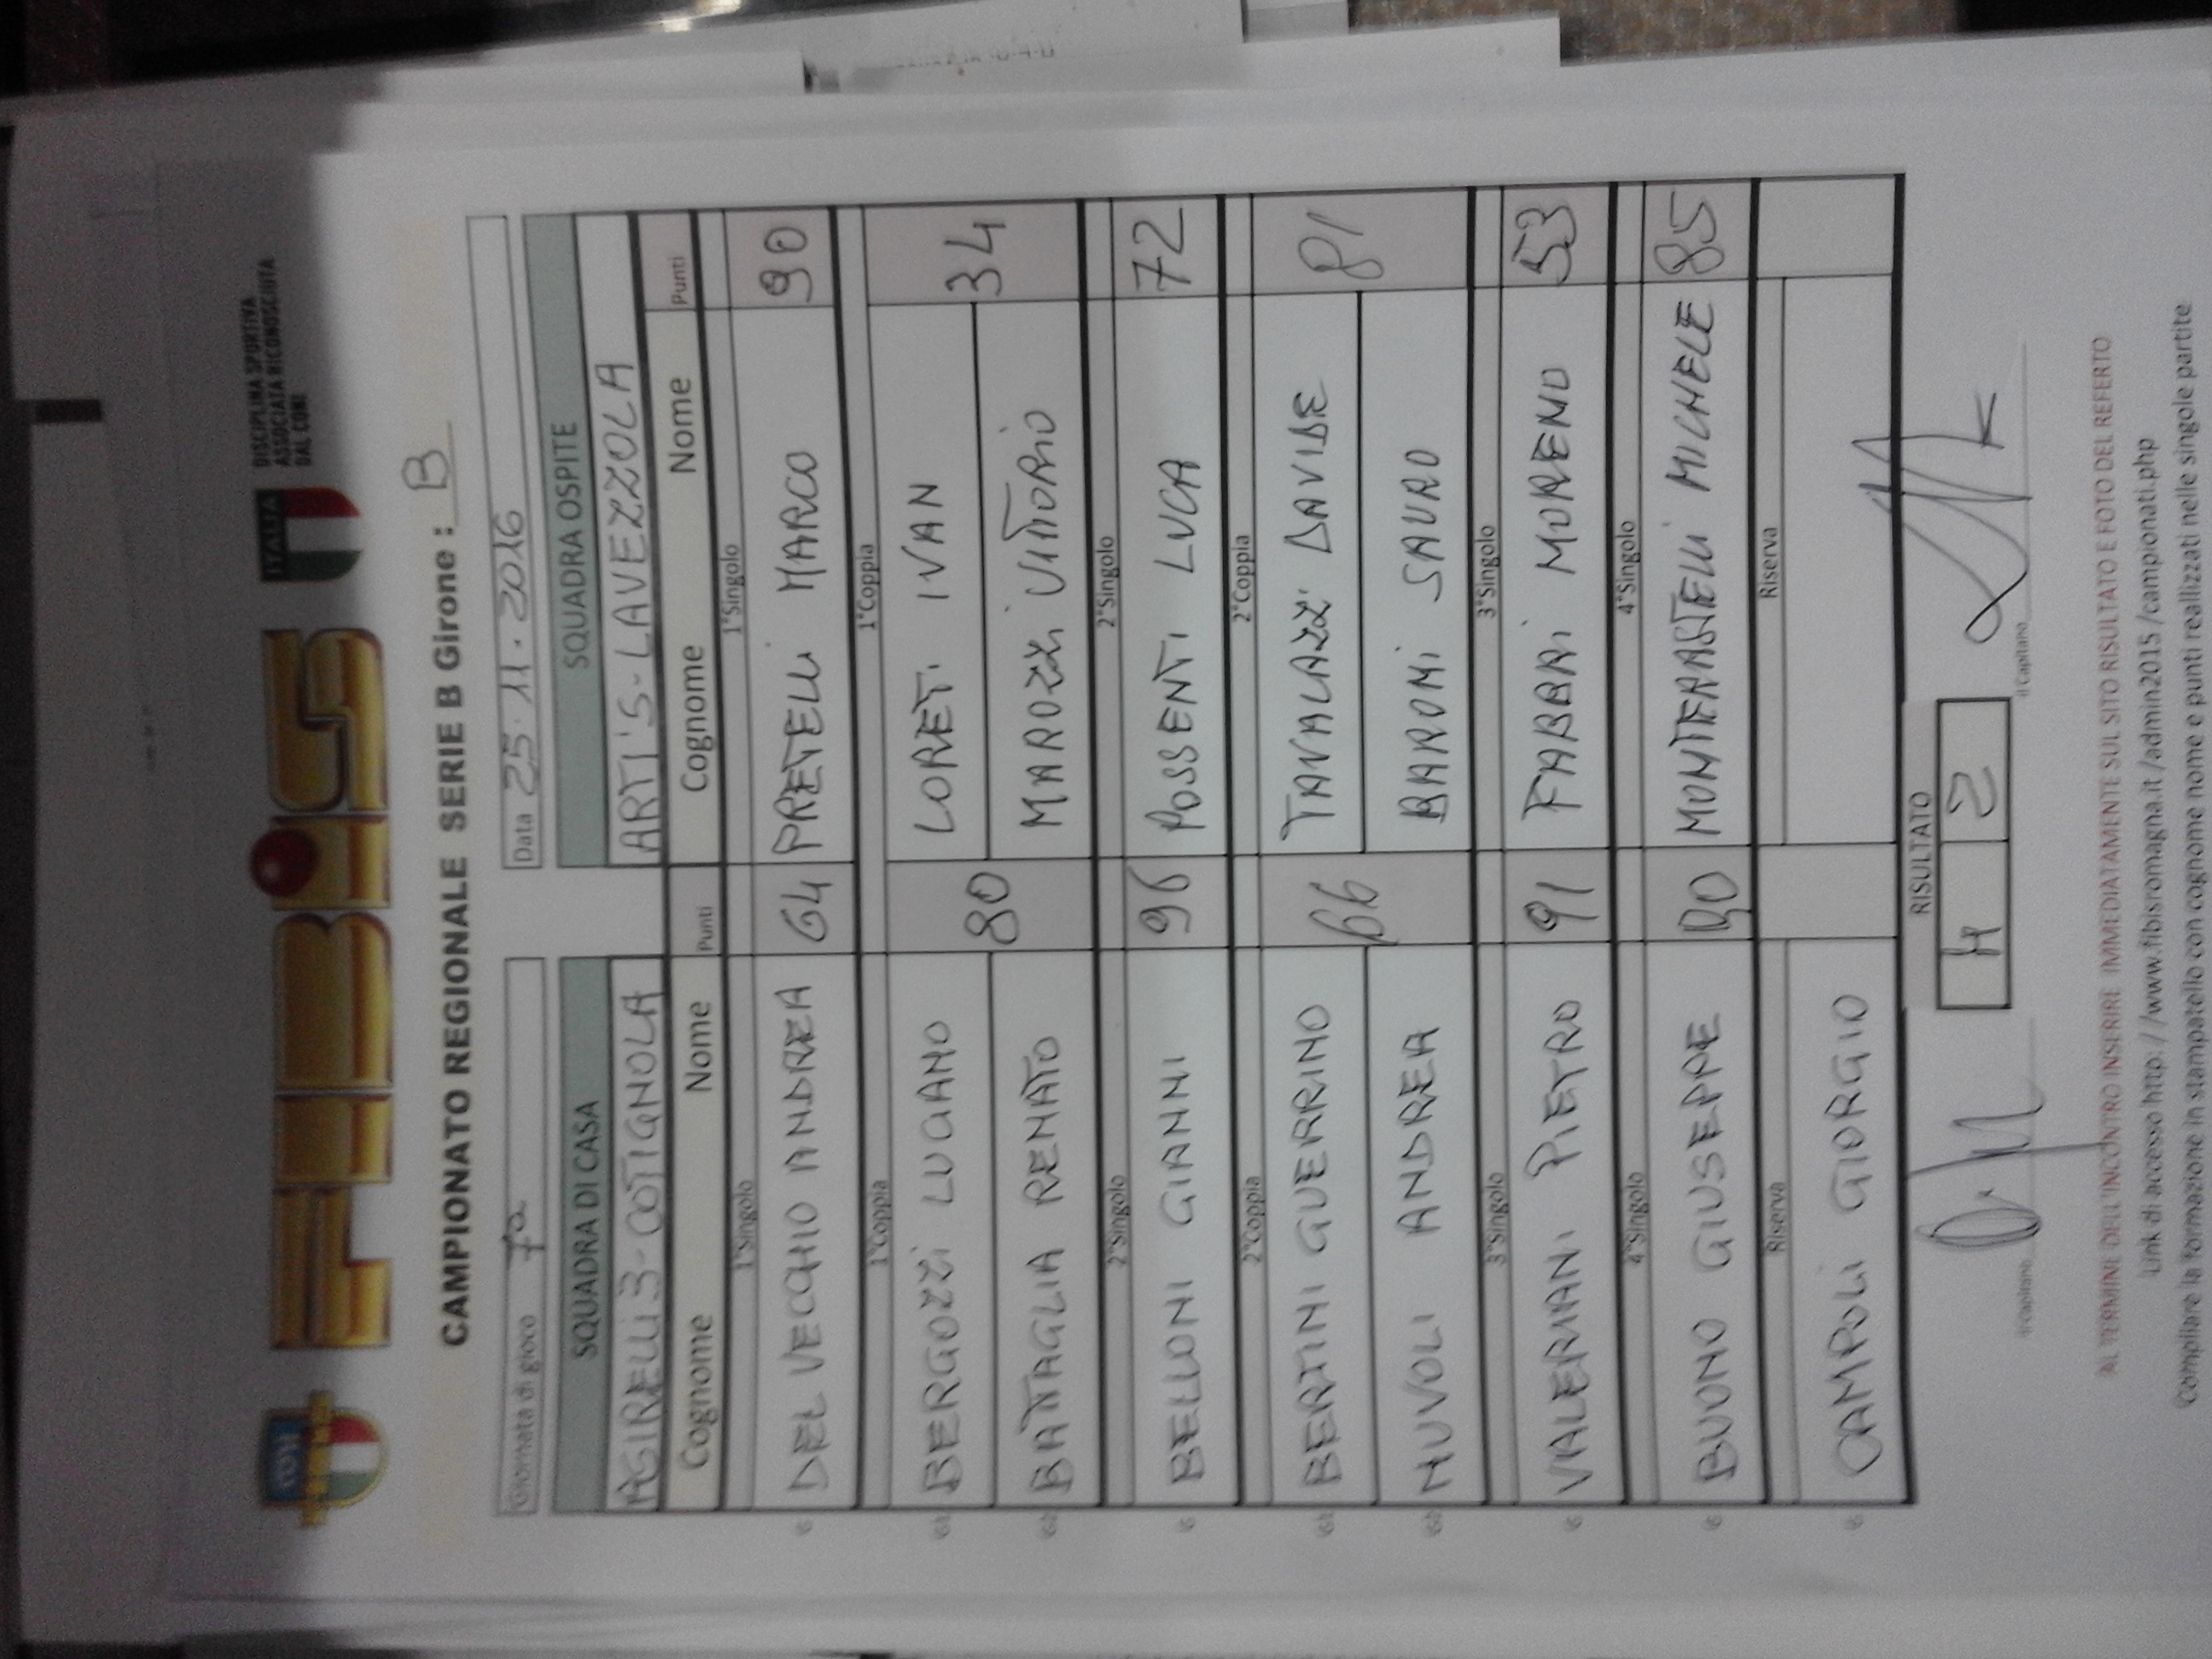 FIBIS
ITALIA
DISCIPLINA SPORTIVA
ASSOCIATA RICONOSCIUTA
DAL CONI
CAMPIONATO REGIONALE SERIE B Girone : B
Giornata di gioco 7a Data 25.11.2016
SQUADRA DI CASA SQUADRA OSPITE
ASIRELLI 3 - COTIGNOLA ARTI'S - LAVEZZOLA
Cognome Nome Punti Cognome Nome Punti
1°Singolo 1°Singolo
DEL VECCHIO ANDREA 64 PRETELLI MARCO 90
1°Coppia 1°Coppia
BERGOZZI LUCIANO 80 LORETI IVAN 34
BATTAGLIA RENATO MAROZZI VITTORIO
2°Singolo 2°Singolo
BELLONI GIANNI 96 POSSENTI LUCA 72
2°Coppia 2°Coppia
BERTINI GUERRINO 66 TAVALAZZI DAVIDE 81
NUVOLI ANDREA BARONI SAURO
3°Singolo 3°Singolo
VALERIANI PIETRO 91 FABBRI MORENO 53
4°Singolo 4°Singolo
BUONO GIUSEPPE 90 MONTEFASTELLI MICHELE 85
Riserva Riserva
CAMPOLI GIORGIO
RISULTATO
4 2
Il Capitano Il Capitano
AL TERMINE DELL'INCONTRO INSERIRE IMMEDIATAMENTE SUL SITO RISULTATO E FOTO DEL REFERTO
Link di accesso http://www.fibisromagna.it/admin2015/campionati.php
Compilare la formazione in stampatello con cognome nome e punti realizzati nelle singole partite